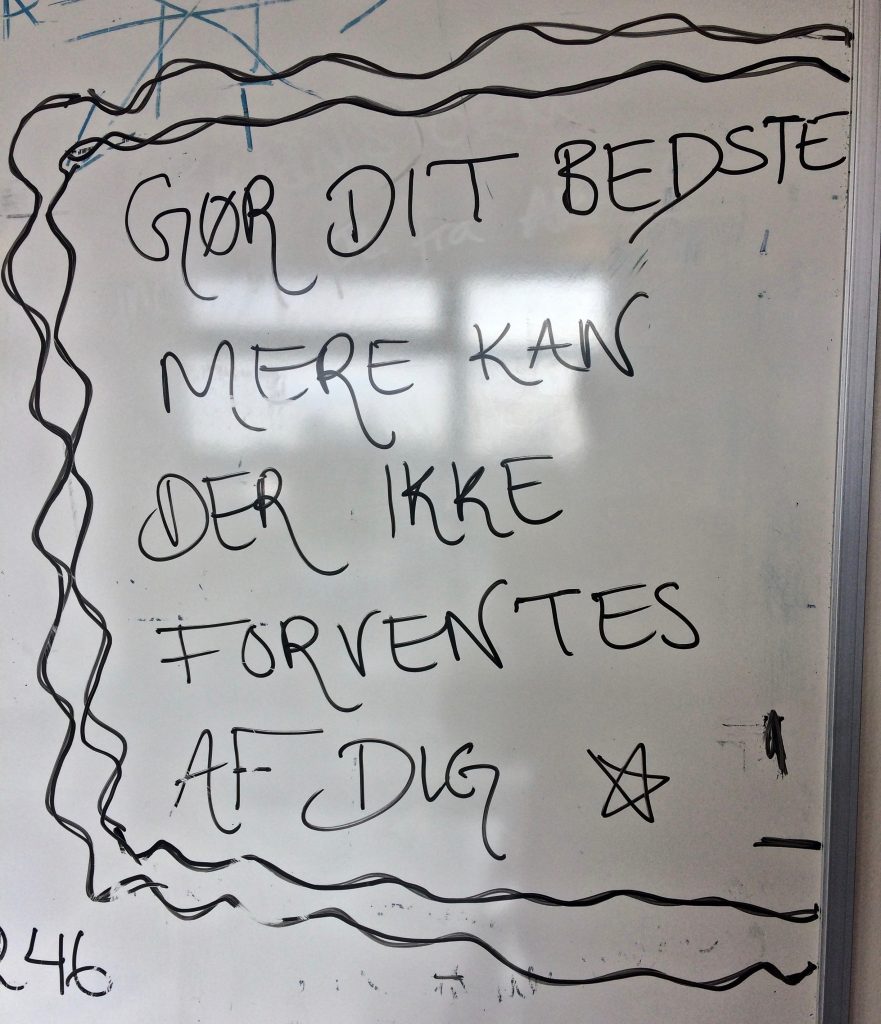 GØR DIT BEDSTE
MERE KAN
DER IKKE
FORVENTES
AF DIG
246